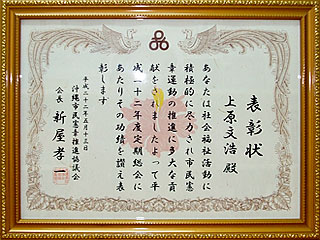 表彰状
上原文浩殿
あなたは社会福祉活動に
積極的に尽力され市民憲
章運動の推進に多大な貢
献をされましたよって平
成二十二年度定期総会に
あたりその功績を讃え表
彰します
平成二十二年五月十三日
沖縄市民憲章推進協議会
会長 新屋孝一